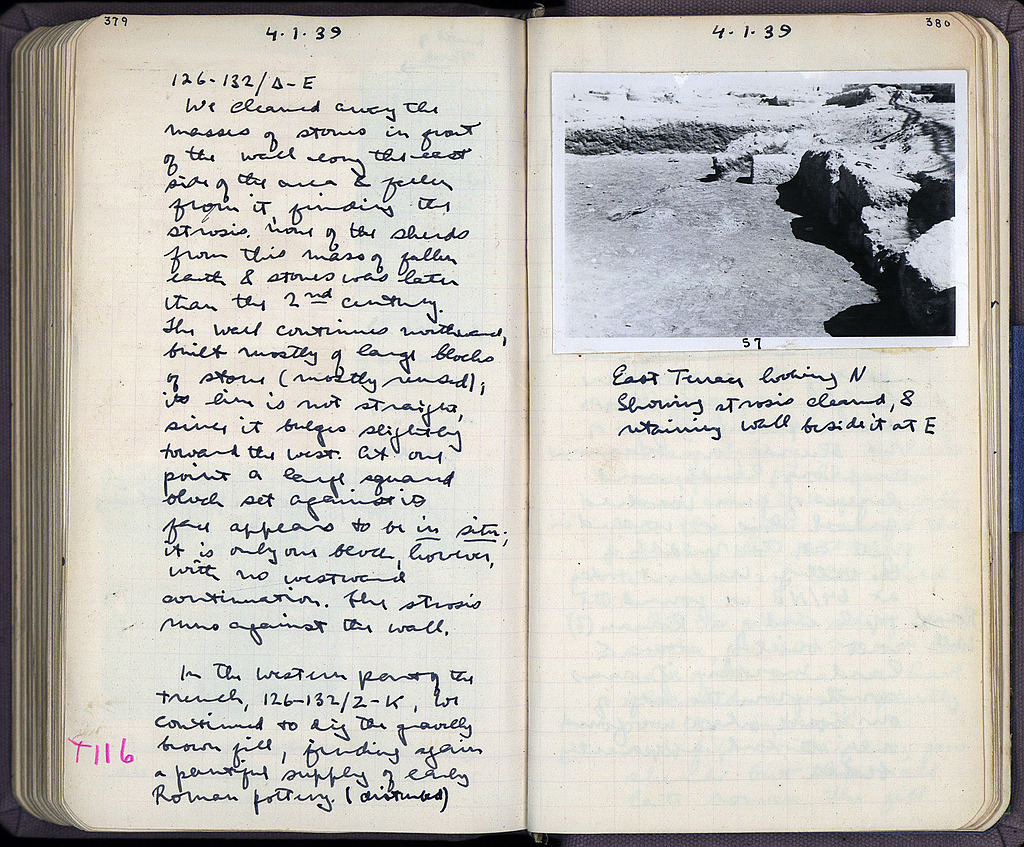 379
4·1·39
126-132/Δ-E
We cleaned away the
masses of stones in front
of the wall along the east
side of the area & fallen
from it, finding the
strosis. None of the sherds
from this mass of fallen
earth & stones was later
than the 2nd century.
The wall continues northward,
built mostly of large blocks
of stone (mostly reused);
its line is not straight,
since it bulges slightly
toward the west. At one
point a large squared
block set against its
face appears to be in situ;
it is only one block, however,
with no westward
continuation. The strosis
runs against the wall.
In the western part of the
trench, 126-132/Z-K, we
continued to dig the gravelly
brown fill, finding again
a plentiful supply of early
Roman pottery. (disturbed)
T116
380
4·1·39
57
East Terrace looking N
Showing strosis cleaned, &
retaining wall beside it at E